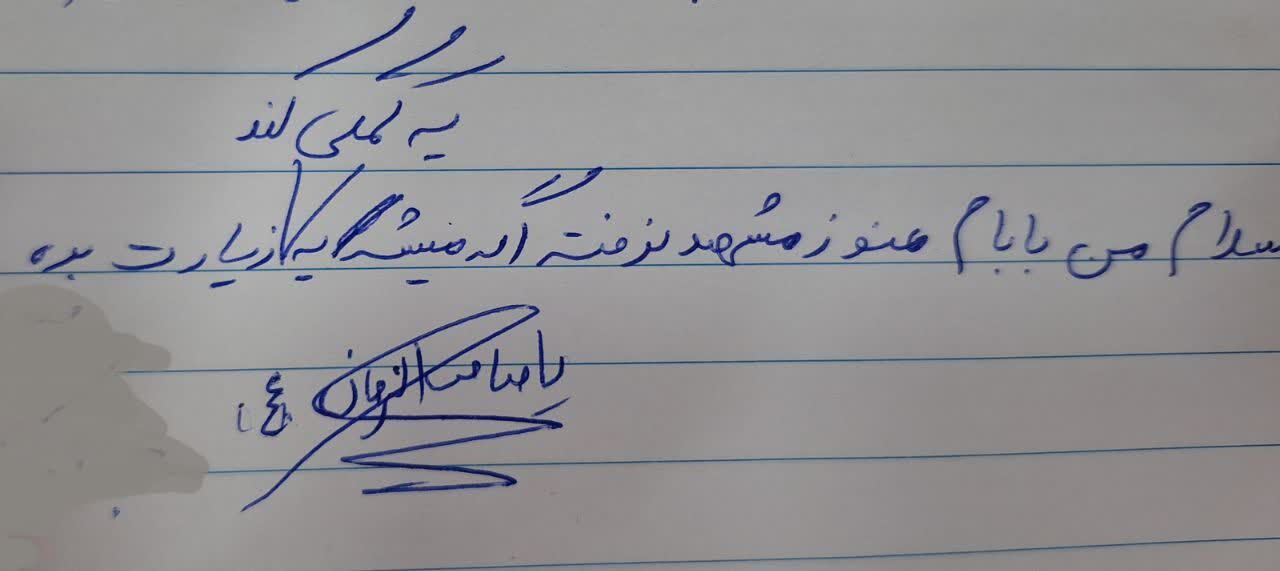 یه کمکی کند
سلام من بابام هنوز مشهد نرفته اگه میشه یه زیارت بده
یا صاحب الزمان